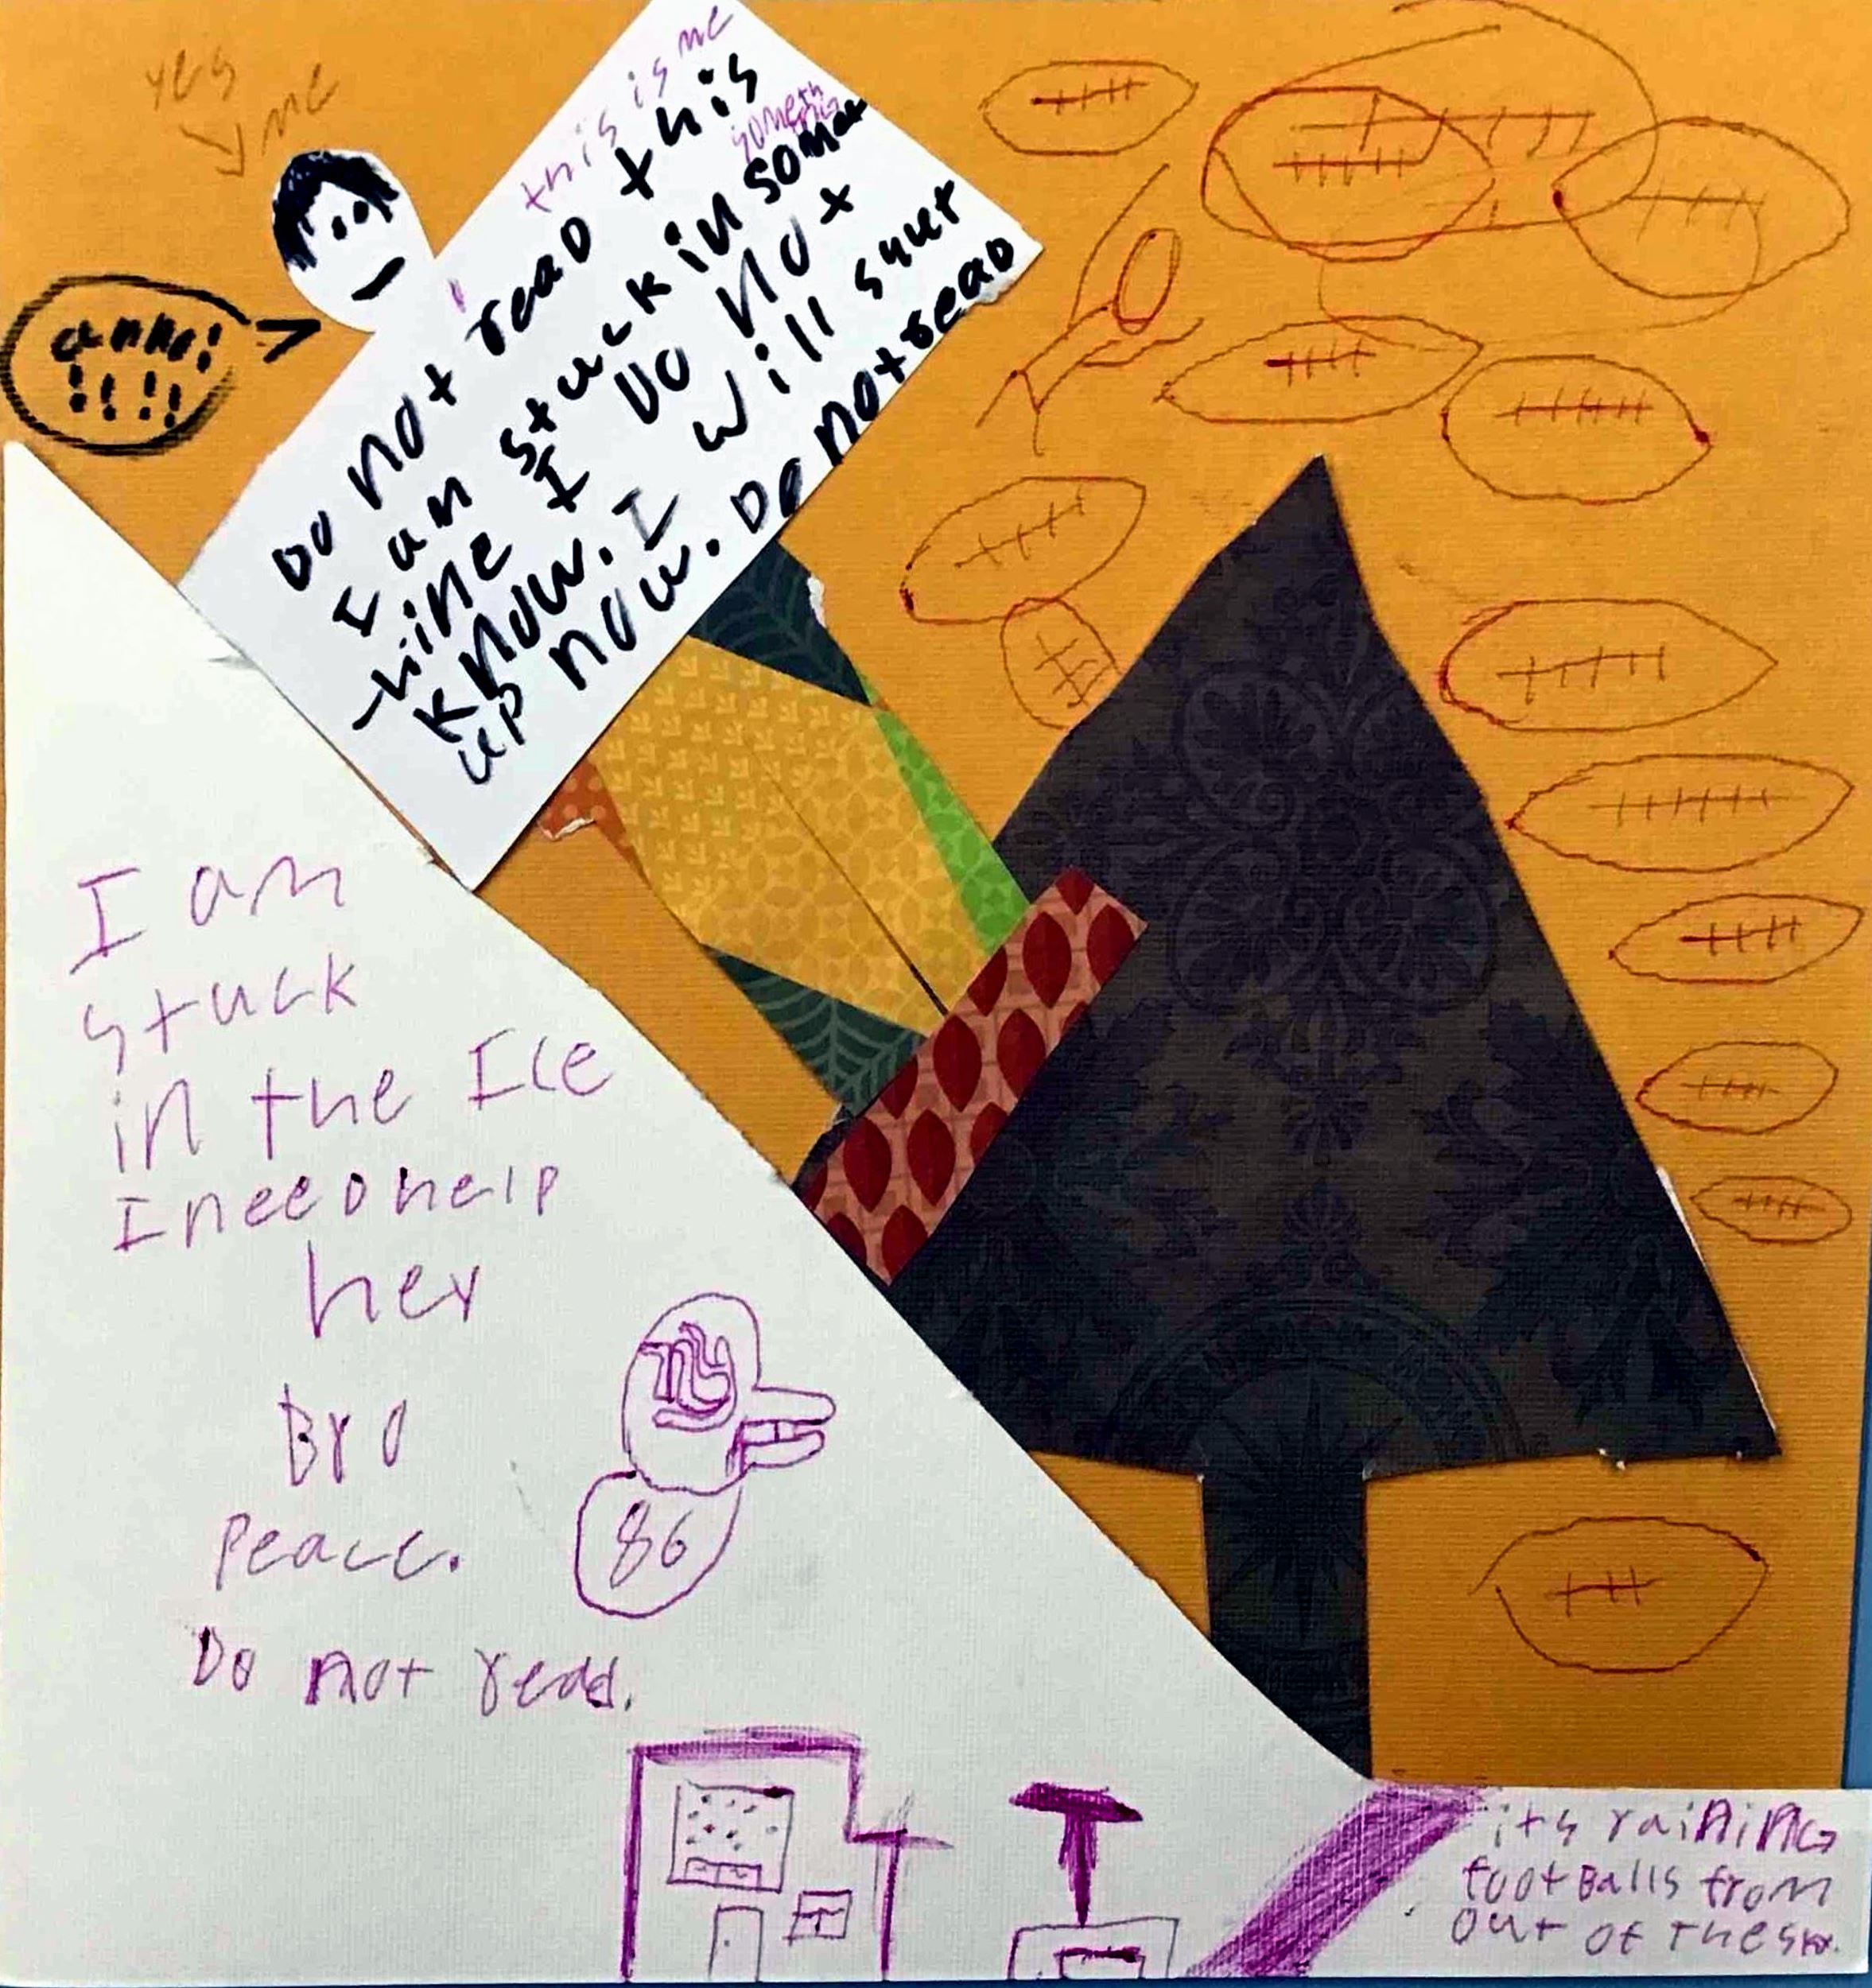 yes
me
this is me
Do not read this
I am stuck in some
someth
ing
-hing I Do not
know. I will shut
up now. Do not read
I am
stuck
in the Ice
I neeD help
her
Bro
Peace.
86
Do not read.
its raiNiNG
footBalls from
out of the sky.